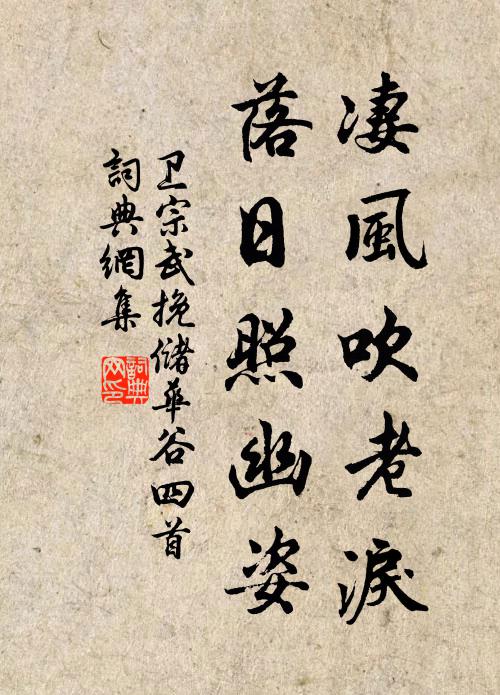 凄風吹老淚
落日照幽姿
卫宗武挽儲華谷四首
詞典網集
詞典
网印